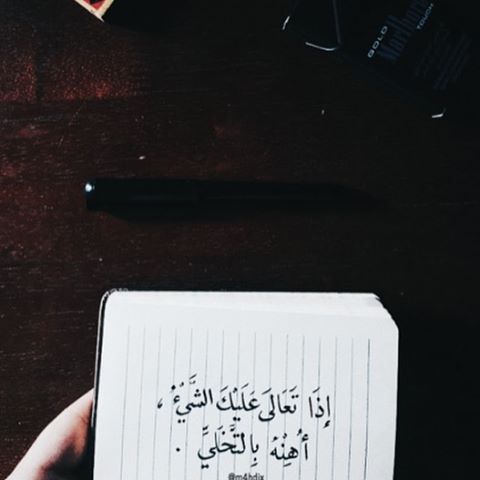 GOLD
Marlboro
TOUCH
إِذَا تَعَالَىَ عَلَيْكَ الشَّيْءُ،
أُهِنْهُ بِالتَّخَلِيَّ .
@m4hdix